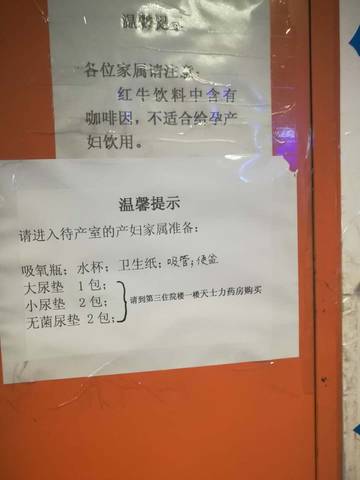 温馨提示
各位家属请注意:
红牛饮料中含有
咖啡因,不适合给孕产
妇饮用。
温馨提示
请进入待产室的产妇家属准备:
吸氧瓶;水杯;卫生纸;吸管;便盆
大尿垫 1包;
小尿垫 2包;
无菌尿垫 2包;
请到第三住院楼一楼天士力药房购买